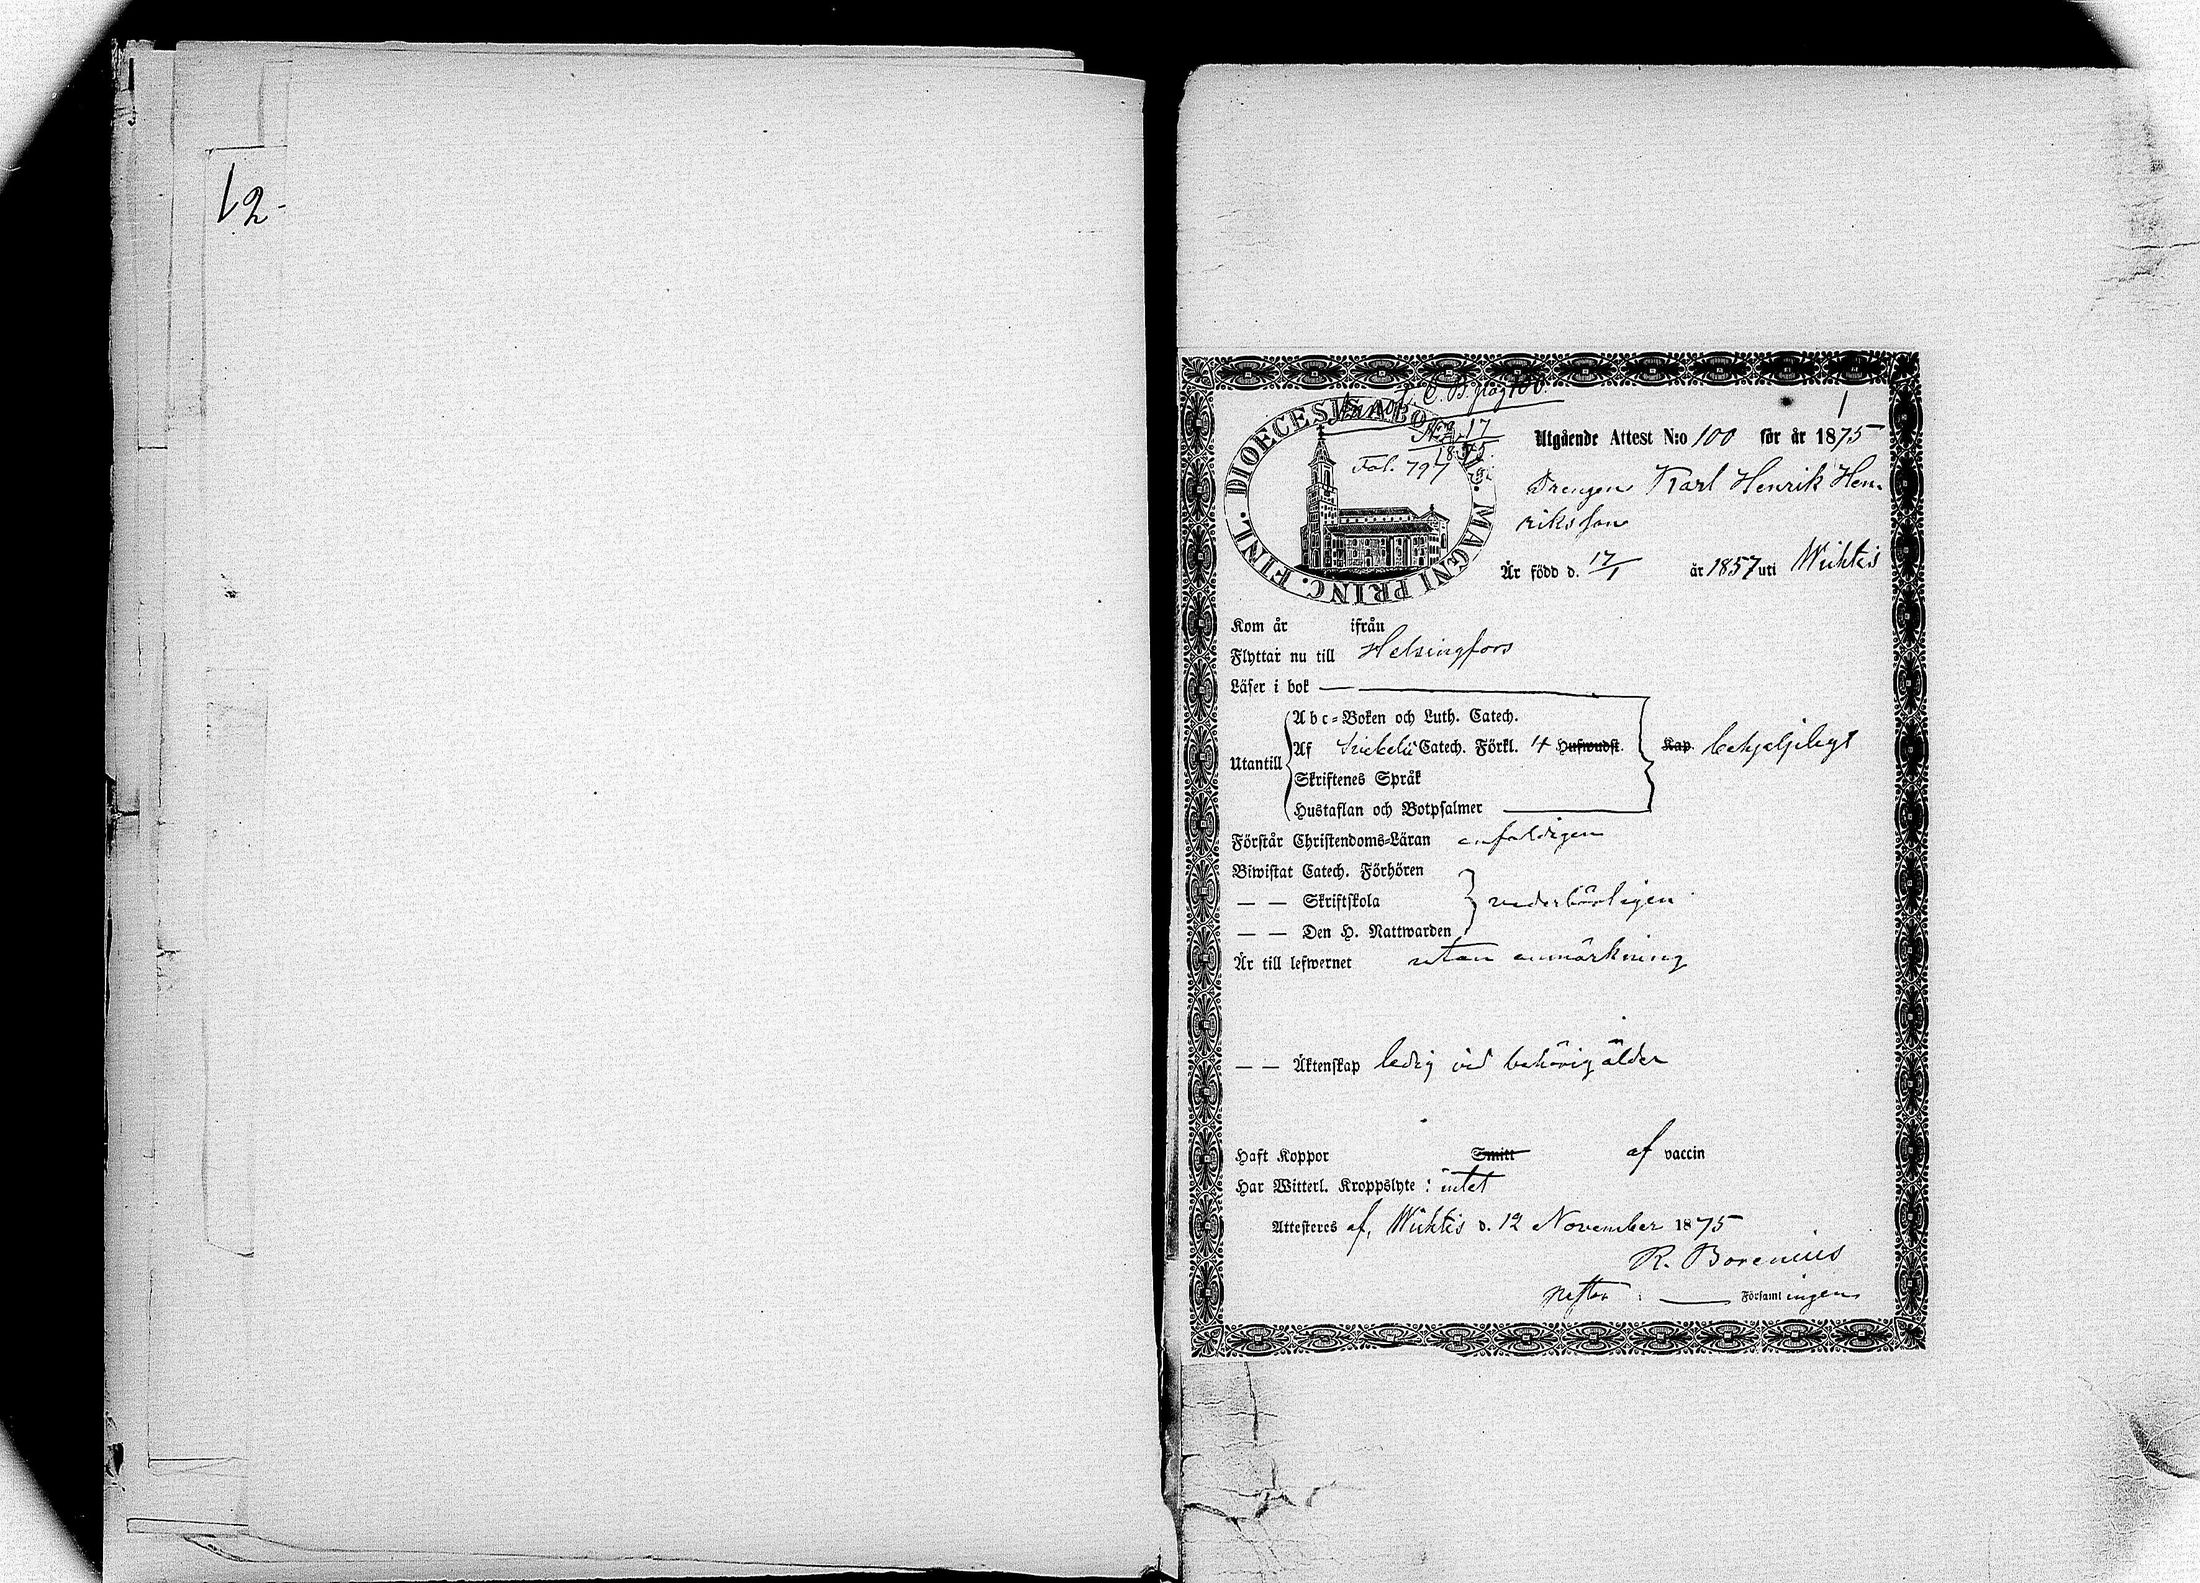 12-
C. B. pag 100.
No 17
1875
Fol. 797
DIOECESIS ABOENSIS. MAGNI PRINC. FINL.
1
Utgående Attest N:o 100 för år 1875
Drengen Karl Henrik Hen-
riksson
Är född d. 17/1 år 1857 uti Wichtis
Kom år ifrån
Flyttar nu till Helsingfors
Läser i bok —
Abc-Boken och Luth. Catech.
Utantill Af Svebelii Catech. Förkl. 4 Hufwudst. Kap. behjelpligt
Skriftenes Språk
Hustaflan och Botpsalmer
Förstår Christendoms-Läran enfaldigen
Biwistat Catech. Förhören
— — Skriftskola vederbörligen
— — Den H. Nattwarden
Är till lefwernet utan anmärkning
— — Äktenskap ledig vid behörig ålder
Haft Koppor Smitt af vaccin
Har Witterl. Kroppslyte: intet
Attesteres af, Wichtis d. 12 November 1875
R. Borenius
Församlingen